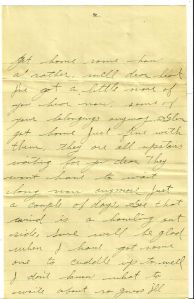 Get home some how
or rather, well dear heart
I've got a little more of
you here now, some of
your belongings anyway, Glen
got home just fine with
them, they are all upstairs
waiting for you dear They
wont have to wait
long now anymore just
a couple of days. Gee that
wind is a howling out
side, sure will be glad
when I have got some
one to cuddle up to. well
I don't know what to
write about so guess Ill